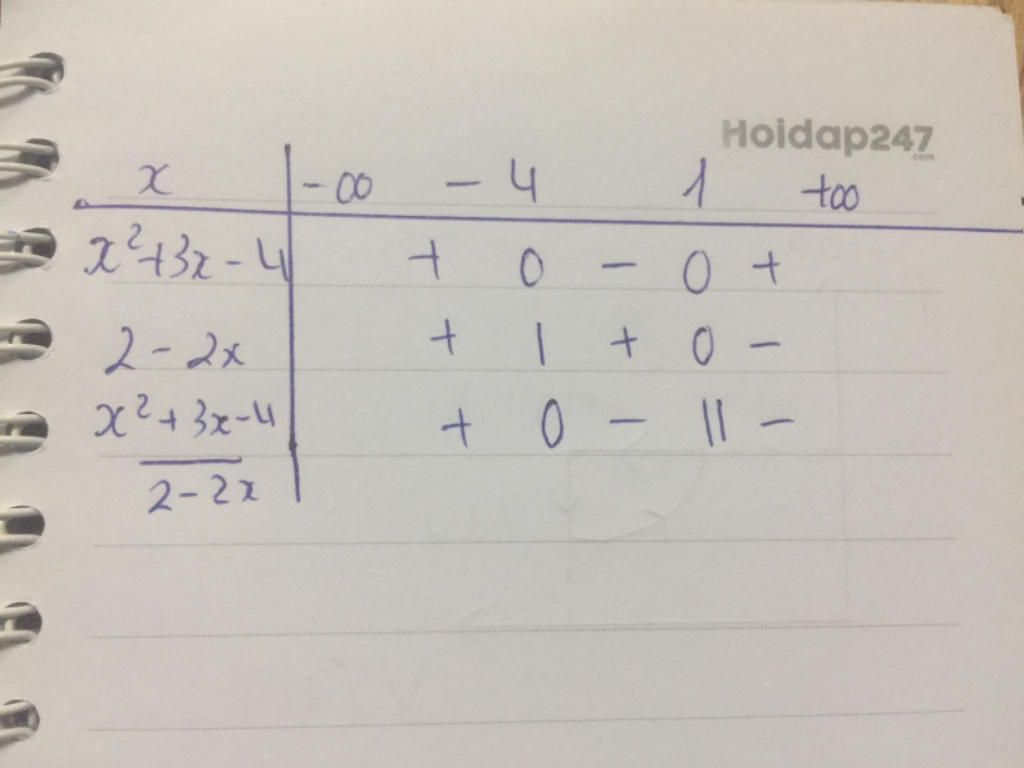 Hoidap247
.com
x | -∞ - 4 1 +∞
x²+3x-4 | + 0 - 0 +
2 - 2x | + | + 0 -
x²+3x-4 | + 0 - || -
2-2x